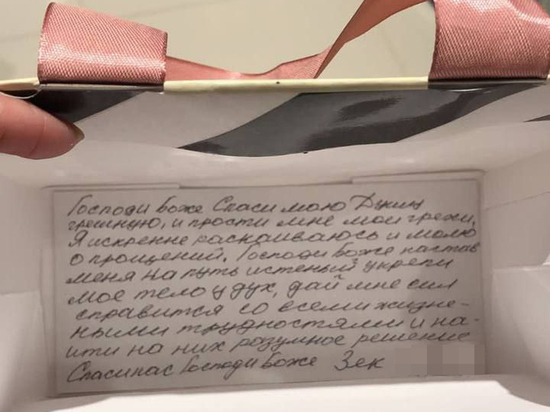 Господи Боже Спаси мою Душу
грешную, и прости мне мои грехи,
Я искренне раскаиваюсь и молю
о прощений. Господи Боже настав
меня на путь истеный укрепи
мое тело и дух, дай мне сил
справится со всеми жизне-
ными трудностями и на-
ити на них разумное решение
Спасинас Господи Боже Зек